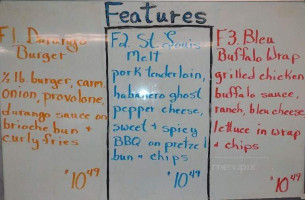 Features
F1. Durango
Burger
½ lb. burger, caram
onion, provolone,
durango sauce on
brioche bun +
curly fries
$10.49
F2. St. Louis
Melt
pork tenderloin,
habanero ghost
pepper cheese,
sweet + spicy
BBQ on pretzel
bun + chips
$10.49
F3. Bleu
Buffalo Wrap
grilled chicken
buffalo sauce,
ranch, bleu cheese
lettuce in wrap
+ chips
$10.49